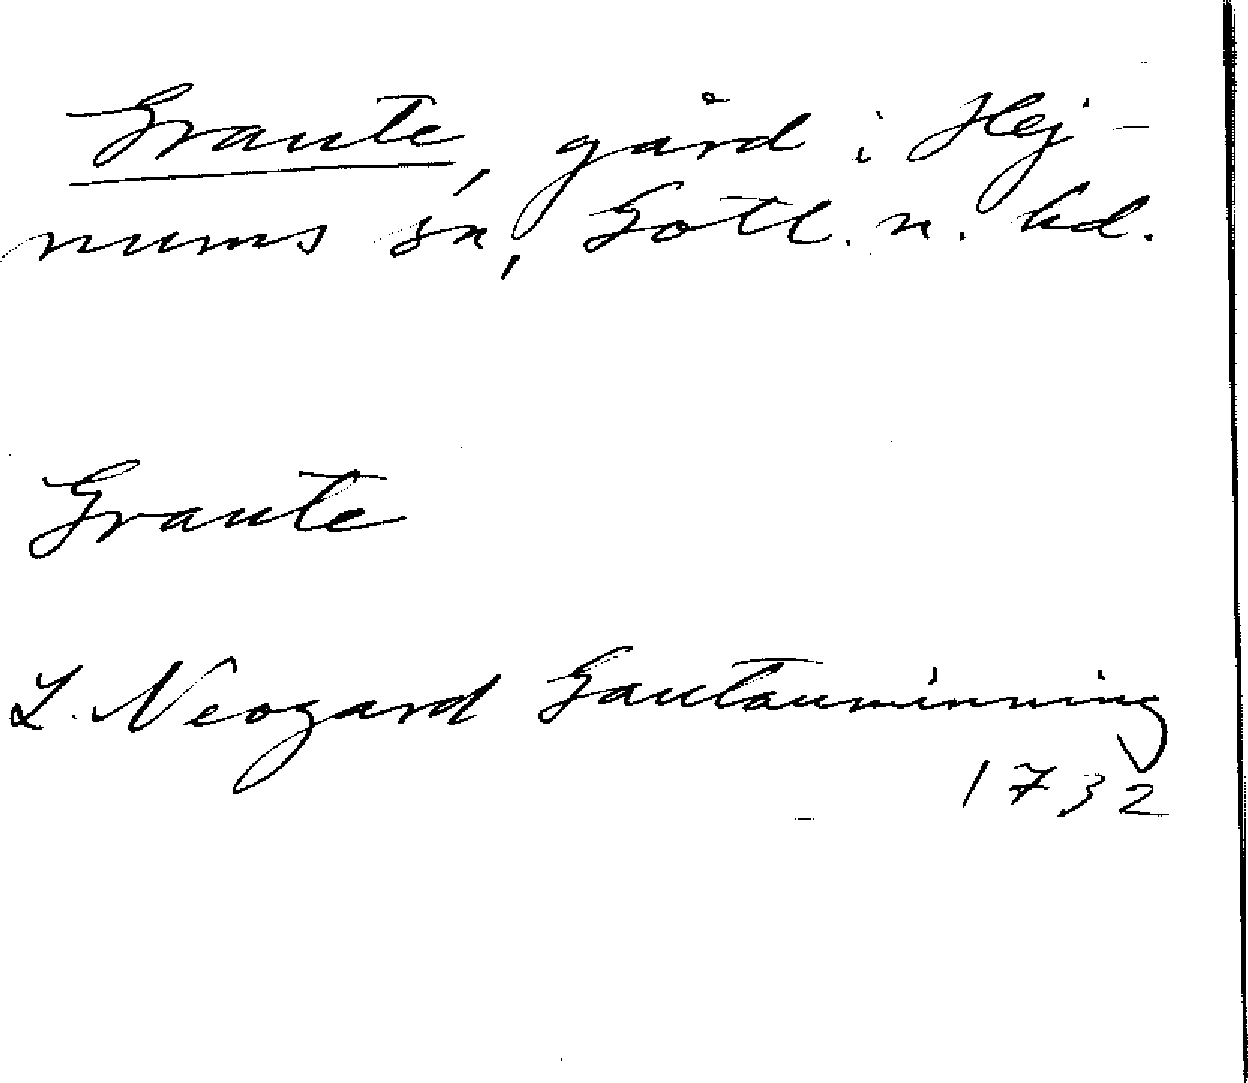 Graute, gård i Hej-
nums sn, Gotl. n. hd.
Graute
L. Neogard Gautauminning
1732